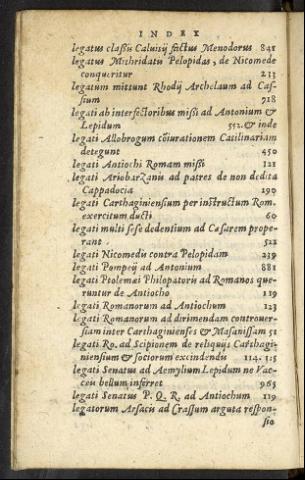 INDEX
legatus classis Caluisij sectus Menodorus 841
legatus Mithridatis Pelopidas, de Nicomede
conqueritur 233
legatum mittunt Rhodij Archelaum ad Cas-
sium 718
legati ab interfectoribus missi ad Antonium &
Lepidum 552. & inde
legati Allobrogum cōiurationem Catilinariam
detegunt 450
legati Antiochi Romam missi 121
legati Ariobarzanis ad patres de non dedita
Cappadocia 190
legati Carthaginiensium per instructum Rom.
exercitum ducti 60
legati multi sese dedentium ad Cæsarem prope-
rant 522
legati Nicomedis contra Pelopidam 239
legati Pompeij ad Antonium 881
legati Ptolemæi Philopatoris ad Romanos que-
runtur de Antiocho 119
legati Romanorum ad Antiochum 123
legati Romanorum ad dirimendam controuer-
siam inter Carthaginienses & Masanissam 51
legati Ro. ad Scipionem de reliquijs Carthagi-
niensium & sociorum excindendis 114. 115
legati Senatus ad Aemylium Lepidum ne Vac-
cæis bellum inferret 965
legati Senatus P. Q. R. ad Antiochum 119
legatorum Arsacis ad Crassum arguta respon-
sio